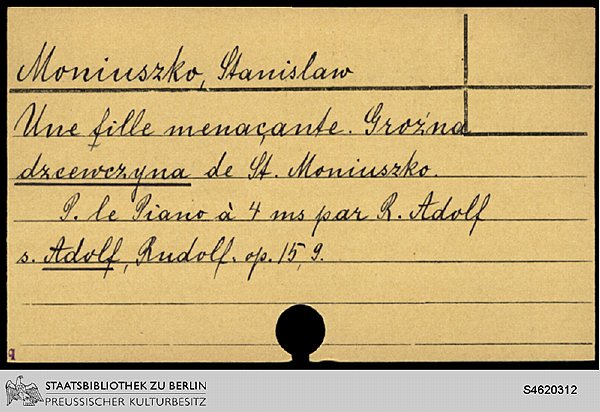 Moniuszko, Stanislaw
Une fille menaçante. Groźna
dzcewczyna de St. Moniuszko.
P. le Piano à 4 ms par R. Adolf
s. Adolf, Rudolf. op. 15, 9.
q
STAATSBIBLIOTHEK ZU BERLIN
PREUSSISCHER KULTURBESITZ
S4620312